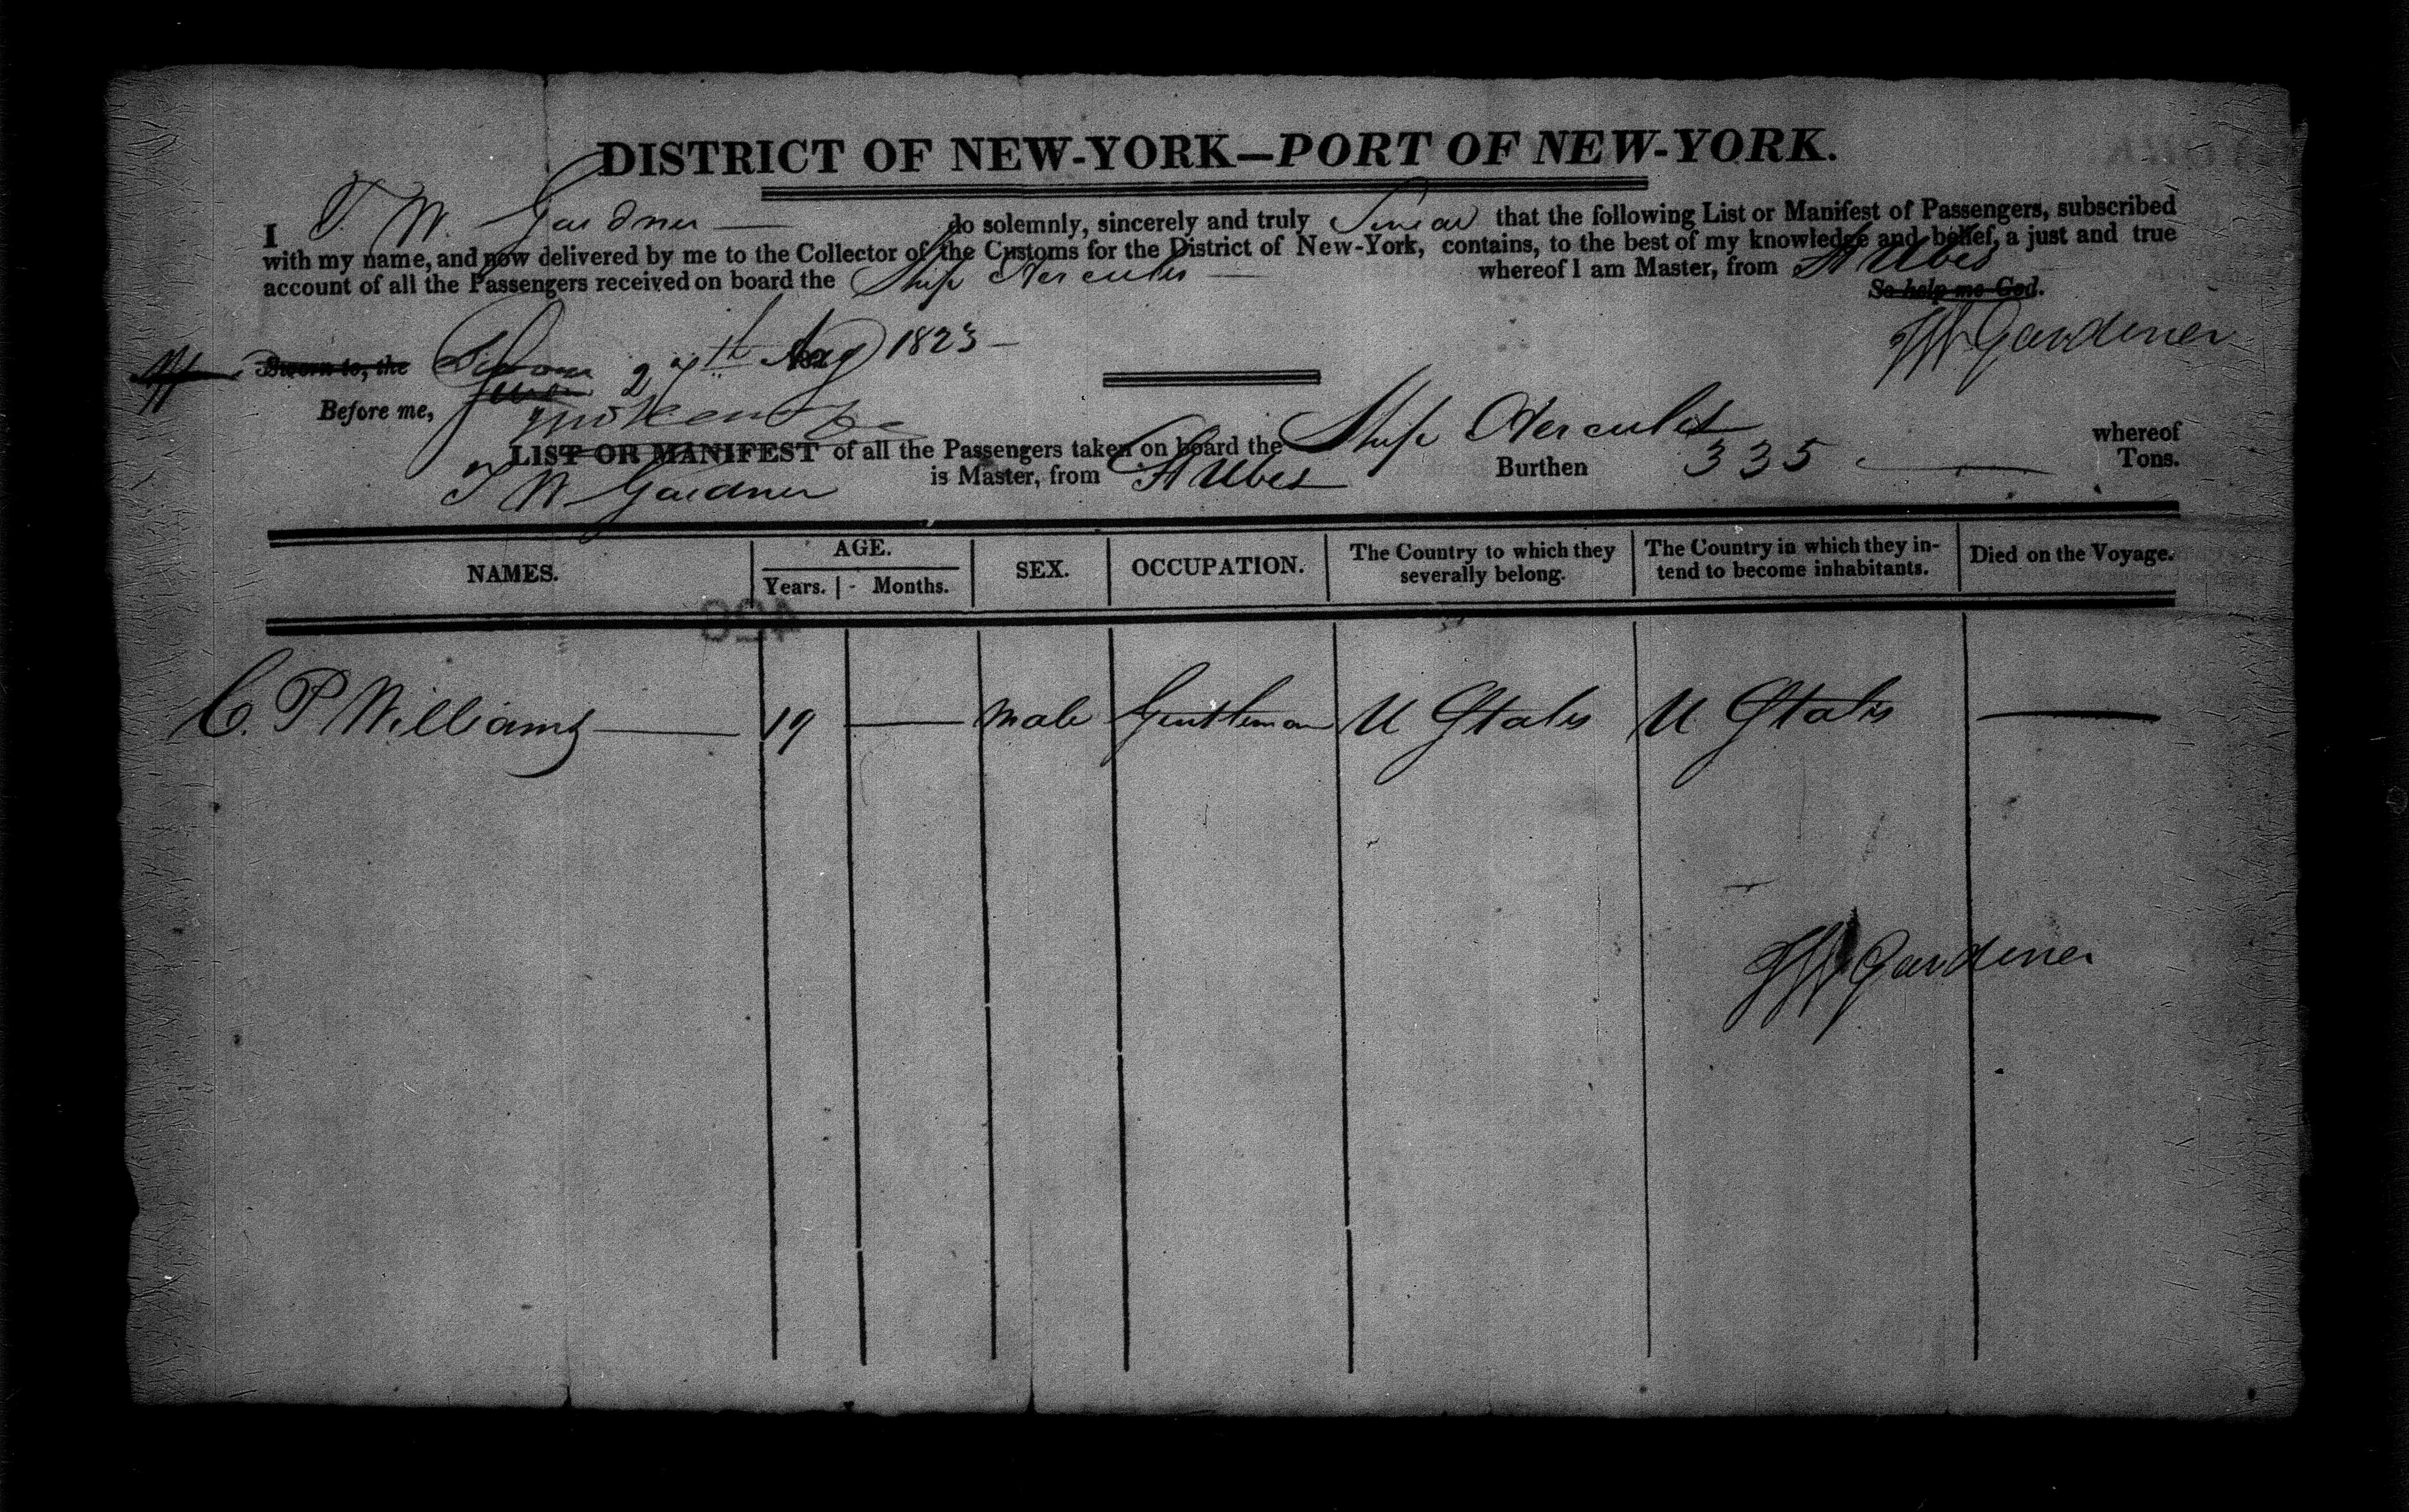 DISTRICT OF NEW-YORK—PORT OF NEW-YORK.
I T. W. Gardner — do solemnly, sincerely and truly Swear that the following List or Manifest of Passengers, subscribed
with my name, and now delivered by me to the Collector of the Customs for the District of New-York, contains, to the best of my knowledge and belief, a just and true
account of all the Passengers received on board the Ship Hercules — whereof I am Master, from St Ubes
So help me God.
TW Gardener
Sworn to, the 27th Aug 1823 —
Before me,
LIST OR MANIFEST of all the Passengers taken on board the Ship Hercules whereof
T W Gardner is Master, from St Ubes Burthen 335 — Tons.
NAMES. AGE. SEX. OCCUPATION. The Country to which they severally belong. The Country in which they in-tend to become inhabitants. Died on the Voyage.
Years. Months.
C. P Williams — 19 — Male Gentleman U States U States —
TW Gardener